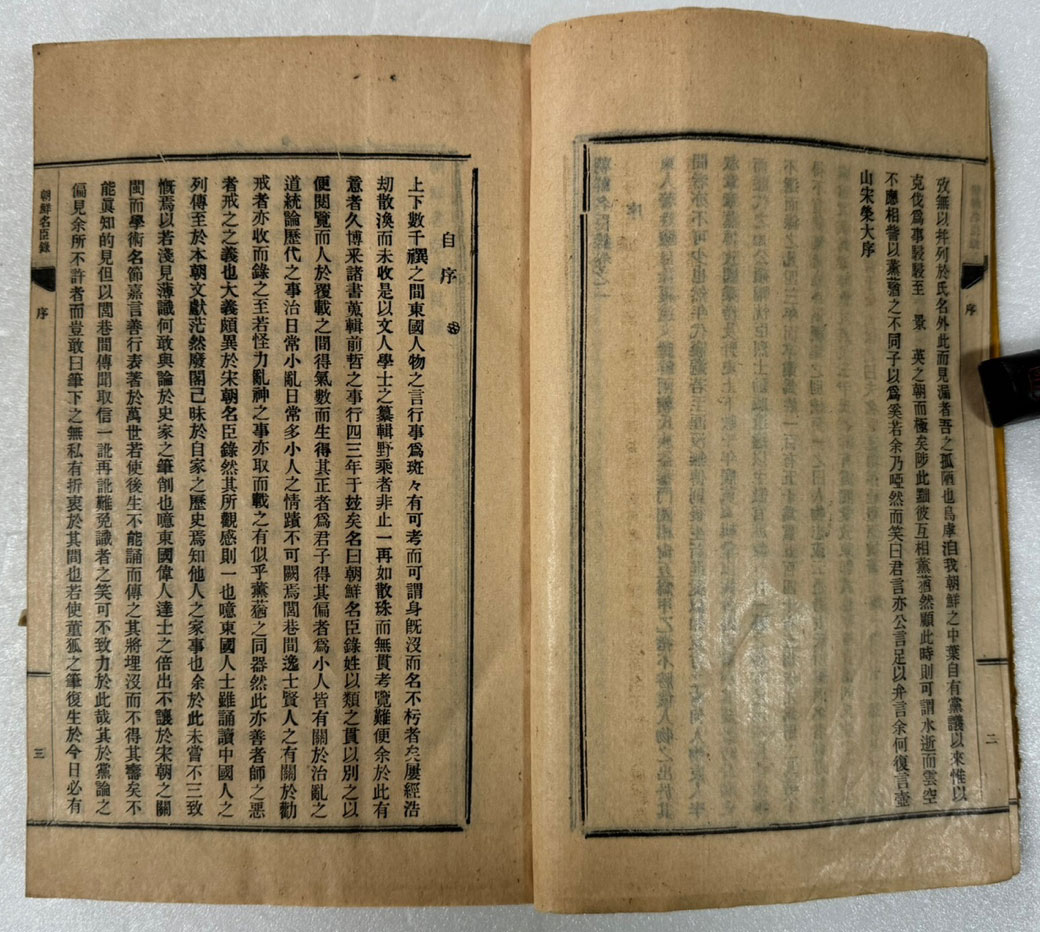 序
二
攷無以幷列於氏名外此而見漏者吾之孤陋也烏虖洎我朝鮮之中葉自有黨議以來惟以
克伐爲事駸駸至 景 英之朝而極矣陟此黜彼互相薰蕕然顧此時則可謂水逝而雲空
不應相訾以薰蕕之不同子以爲奚若余乃啞然而笑曰君言亦公言足以弁言余何復言壺
山宋榮大序
自序
上下數千禩之間東國人物之言行事爲斑々有可考而可謂身旣沒而名不朽者矣屢經浩
刧散渙而未收是以文人學士之纂輯野乘者非止一再如散珠而無貫考覽難便余於此有
意者久博釆諸書蒐輯前哲之事行四三年于玆矣名曰朝鮮名臣錄姓以類之貫以別之以
便閱覽而人於覆載之間得氣數而生得其正者爲君子得其偏者爲小人皆有關於治亂之
道統論歷代之事治日常小亂日常多小人之情蹟不可闕焉閭巷間逸士賢人之有關於勸
戒者亦收而錄之至若怪力亂神之事亦取而載之有似乎薰蕕之同器然此亦善者師之惡
者戒之之義也大義頗異於宋朝名臣錄然其所觀感則一也噫東國人士雖誦讀中國人之
列傳至於本朝文獻茫然廢閣己昧於自家之歷史焉知他人之家事也余於此未嘗不三致
慨焉以若淺見薄識何敢與論於史家之筆削也噫東國偉人達士之倍出不讓於宋朝之關
閩而學術名節嘉言善行表著於萬世若使後生不能誦而傳之其將埋沒而不得其審矣不
能眞知的見但以閭巷間傳聞取信一訛再訛難免識者之笑可不致力於此哉其於黨論之
偏見余所不許者而豈敢曰筆下之無私有折衷於其間也若使董狐之筆復生於今日必有
朝鮮名臣錄
序
三